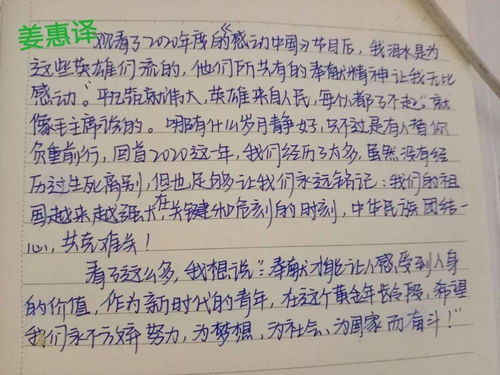 姜惠译
观看了2020年度的《感动中国》节目后，我泪水是为
这些英雄们流的，他们所共有的奉献精神让我无比
感动。"平凡铸就伟大，英雄来自人民，每个人都了不起。"就
像毛主席说的。哪有什么岁月静好，只不过是有人替你
负重前行，回首2020这一年，我们经历了太多，虽然没有经
历过生死离别，但也足够让我们永远铭记：我们的祖
国越来越强大，在关键和危刻的时刻，中华民族团结一
心，共克难关！
看了这么多，我想说："奉献才能让人感受到人身
的价值，作为新时代的青年，在这个黄金年龄段，希望
我们永不放弃努力，为梦想，为社会、为国家而奋斗！"